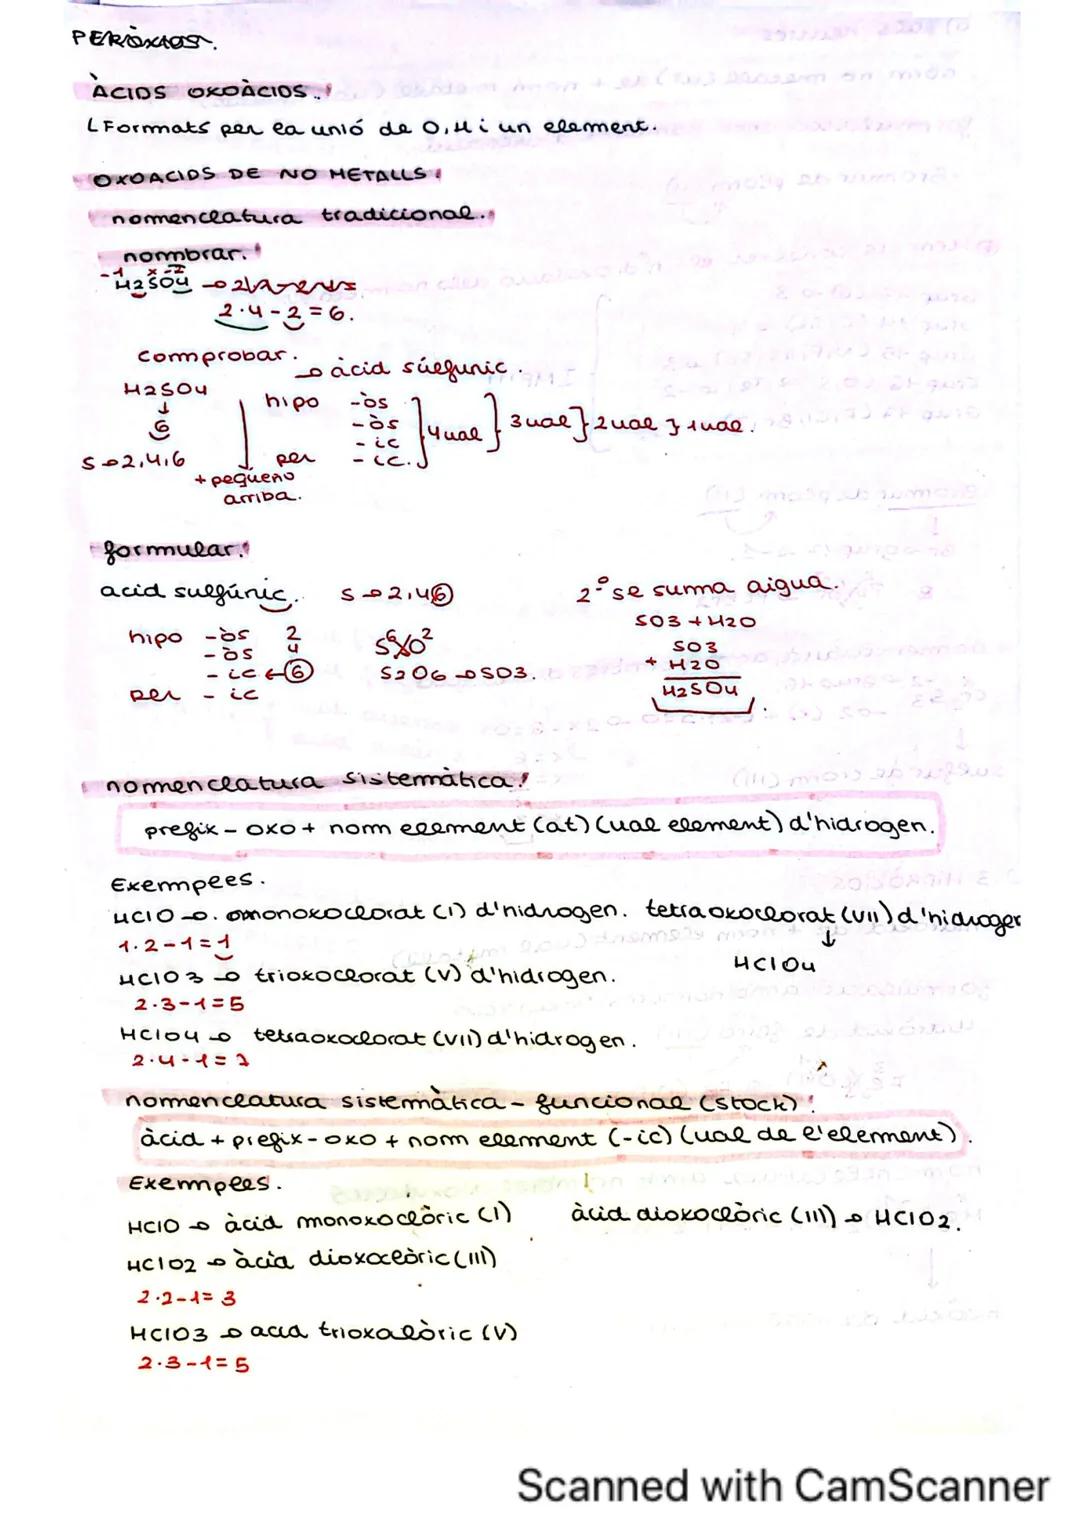 PERÒXIDS.
ÀCIDS OXOÀCIDS.
Formats per la unió de O, H i un element.
OXOACIDS DE NO METALLS
nomenclatura tradicional.
nombrar.
-1 x -2
H2SO4
2·4-2=6.
comprobar.
→ àcid súlfuric.
H2SO4
↓
6
S→2,4,6
+ pequeno
arriba.
hipo -òs
-òs
-ic
per -ic.
4val } 3val } 2val } 1val.
formular.
acid sulfúric. S→2,4,6
hipo -òs 2
-òs 4
-ic ← 6
per -ic
S6 O2
S2O6→SO3.
2º se suma aigua.
SO3+H2O
SO3
+ H2O
H2SO4
nomenclatura sistemàtica!
prefix-oxo+ nom element (at) (val element) d'hidrogen.
Exemples.
HClO→ monoxoclorat (I) d'hidrogen. tetraoxoclorat (VII) d'hidrogen
1·2-1=1
↓
HClO4
HClO3→ trioxoclorat (V) d'hidrogen.
2·3-1=5
HClO4→ tetraoxoclorat (VII) d'hidrogen.
2·4-1=7
nomenclatura sistemàtica-funcional (stock)!
àcid + prefix-oxo + nom element (-ic) (val de l'element).
Exemples.
HClO→ àcid monoxoclòric (I) àcid dioxoclòric (III)→ HClO2.
HClO2→ àcid dioxoclòric (III)
2·2-1=3
HClO3→ acid trioxoclòric (V)
2·3-1=5
Scanned with CamScanner